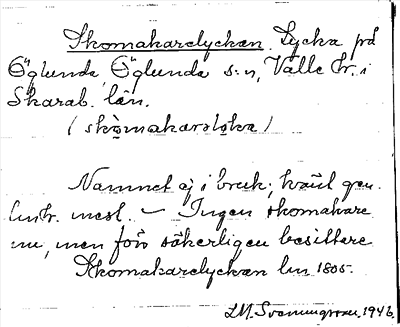 Skomakarelyckan. Lycka på
Öglunda, Öglunda s:n, Valle hr. i
Skarab. län.
(skòmakarəløka)
Namnet ej i bruk; känt gen.
lm kr. mest. – Ingen skomakare
nu, men förr säkerligen besittare
Skomakarelyckan lm 1805.
L.M. Svenungsson, 1946.